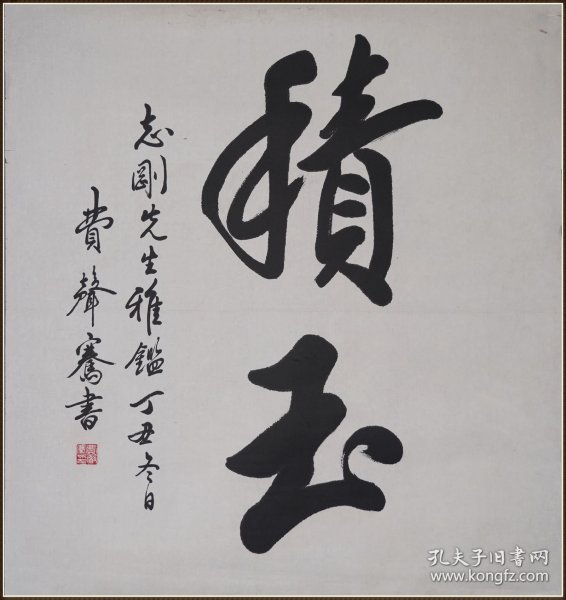 積玉
志剛先生雅鑑丁丑冬日
費聲騫書
孔夫子旧书网
www.kongfz.com